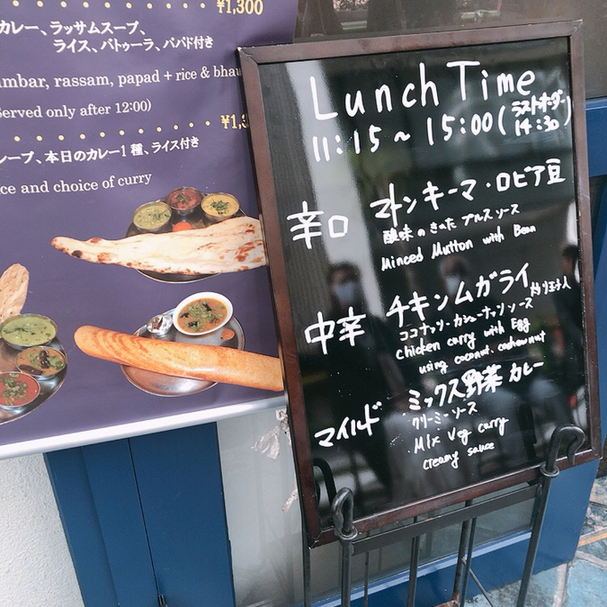 ¥1,300
カレー、ラッサムスープ、
ライス、バトゥーラ、パパド付き
mbar, rassam, papad + rice & bhat
served only after 12:00)
¥1,3
ープ、本日のカレー1 種、ライス付き
ce and choice of curry
Lunch Time
11:15~15:00(ラストオーダー 14:30)
辛口 マトンキーマ・ロビア豆
酸味のきいた プルスソース
Minced Mutton with Bean
中辛 チキンムガライ
ココナッツ・カシューナッツソース
chicken curry with Egg
using coconut. cashewnut
マイルド ミックス野菜カレー
クリーミーソース
Mix Veg curry
creamy sauce